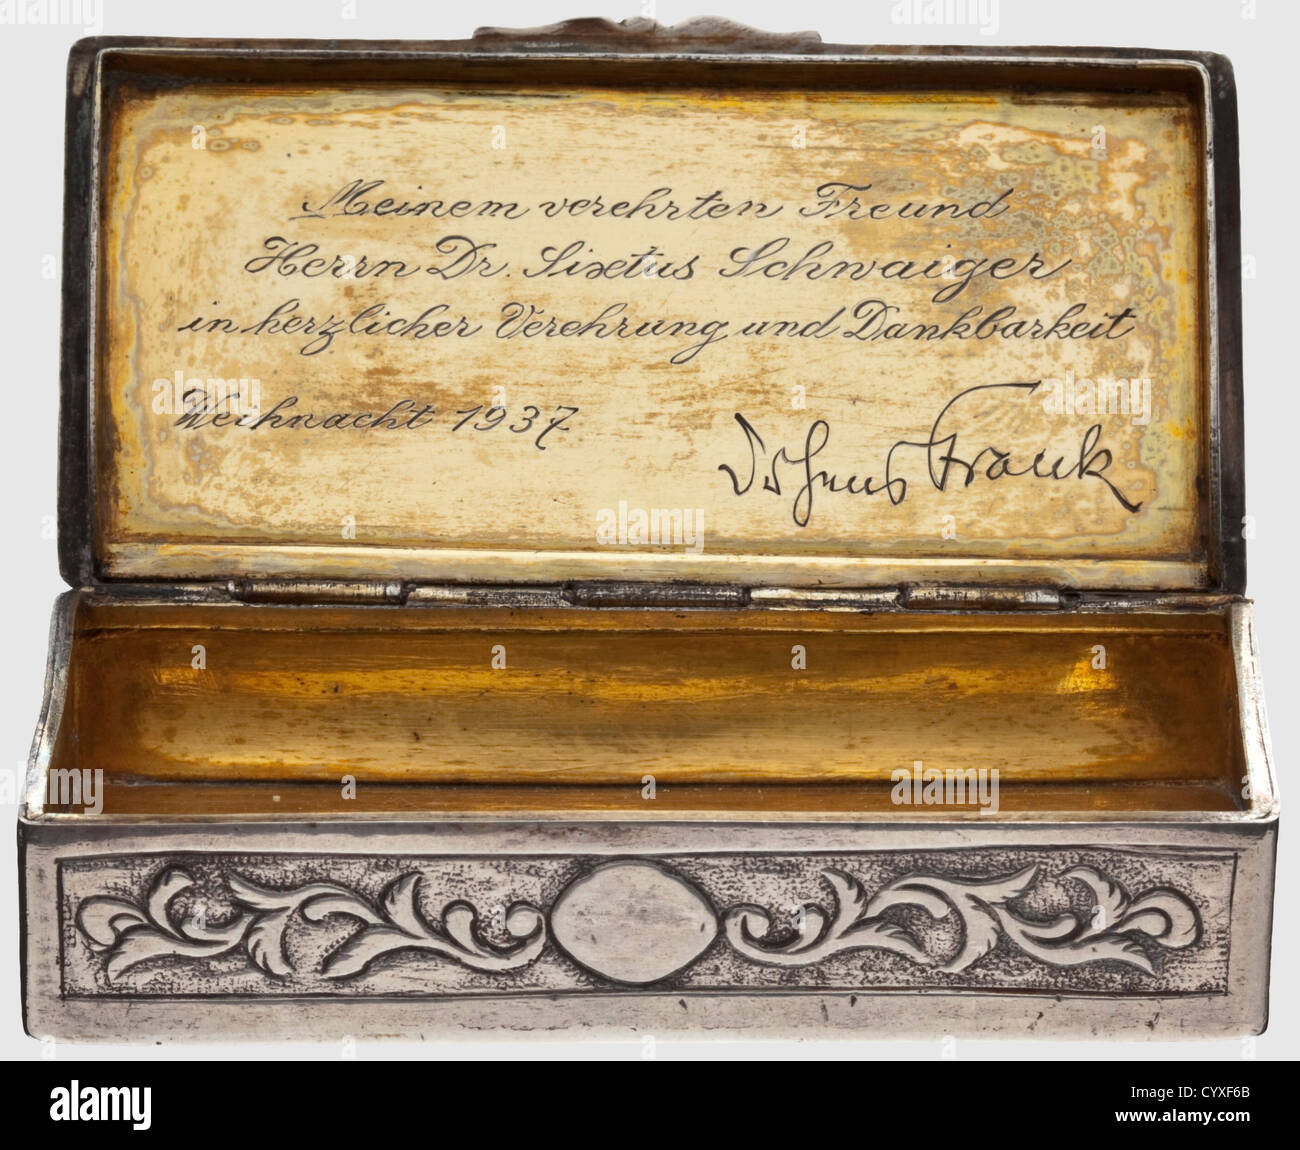 Meinem verehrten Freund
Herrn Dr. Sixtus Schwaiger
in herzlicher Verehrung und Dankbarkeit
Weihnacht 1937
Dr Hans Frank
alamy
Image ID: CYXF6B
www.alamy.com